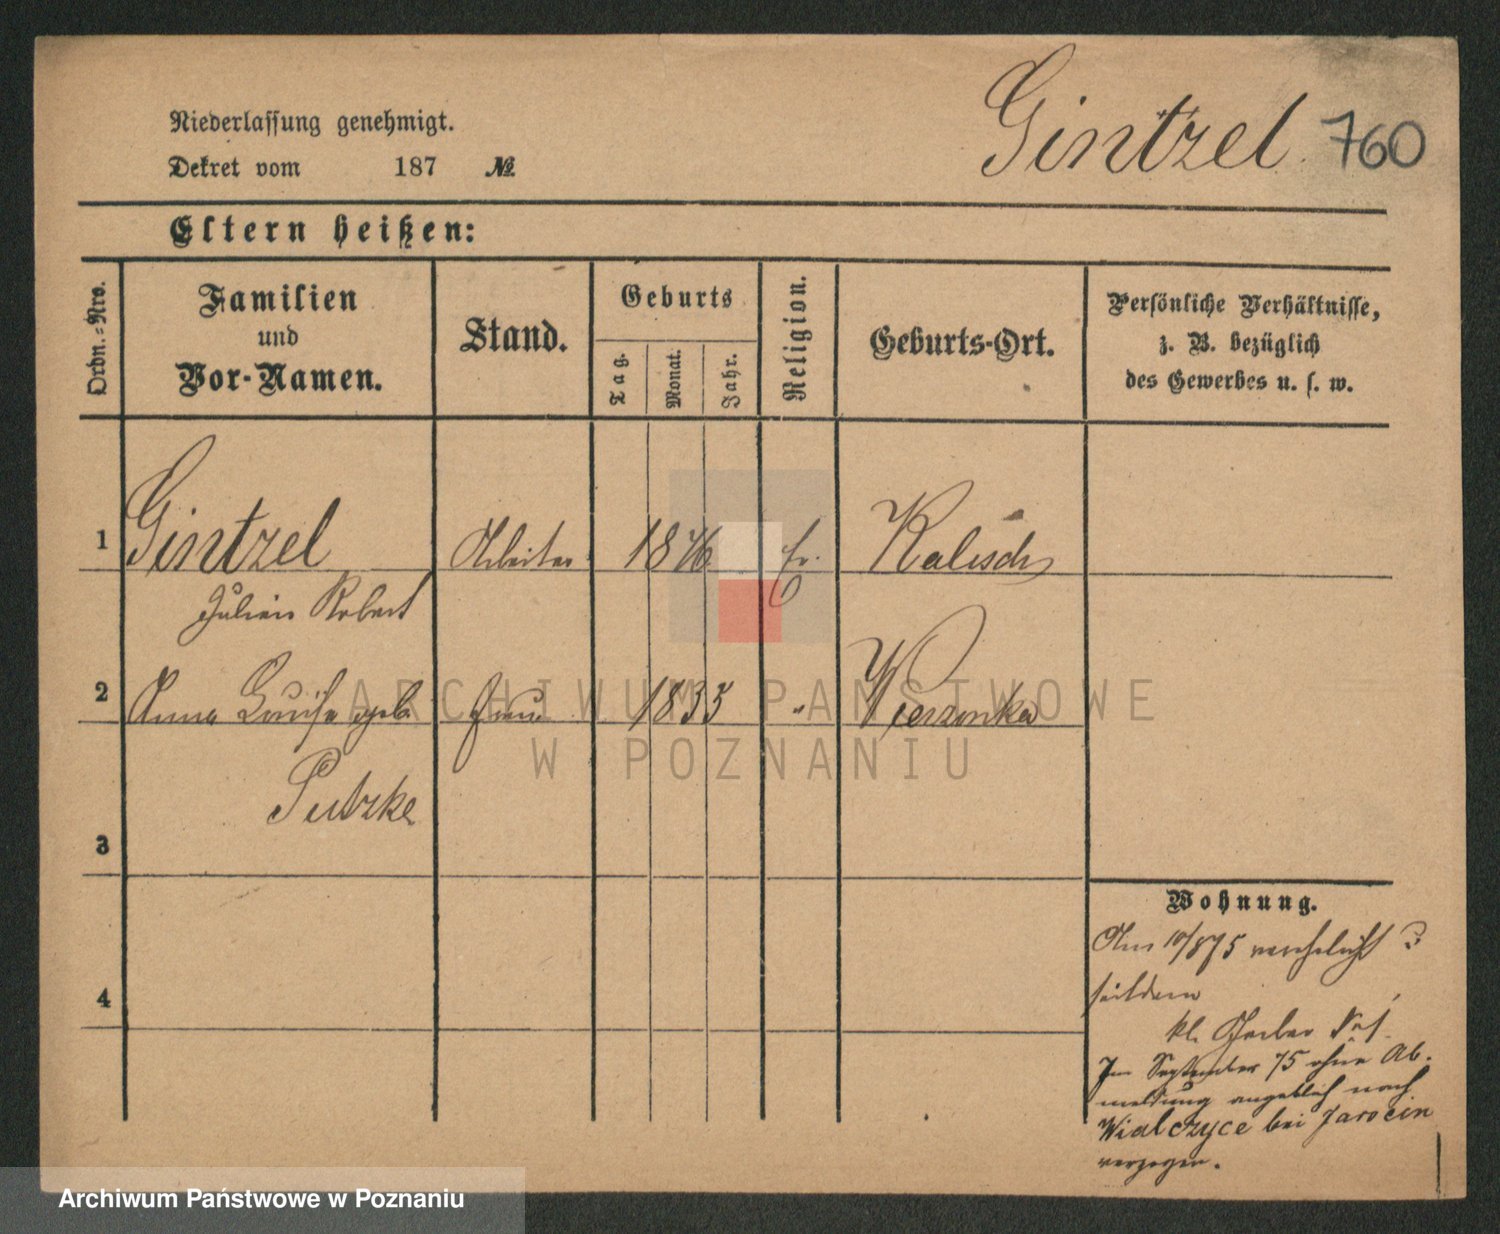 Gintzel 760
Niederlassung genehmigt.
Dekret vom 187 №
Eltern heißen:
Ordn.-Nro.
Familien
und
Vor-Namen.
Stand.
Geburts
Tag.
Monat.
Jahr.
Religion.
Geburts-Ort.
Persönliche Verhältnisse,
z. B. bezüglich
des Gewerbes u. s. w.
1 Gintzel Arbeiter 1846 Kalisch
Julius Robert
2 Anna Louise geb. Frau 1835 " Pierzonka
Putzke
3
4
Wohnung.
Am 10/875 verehelicht
seitdem
kl. Gerber
Im September 75 ohne Ab-
meldung angeblich nach
Wialczyce bei Jarocin
verzogen.
ARCHIWUM PAŃSTWOWE
W POZNANIU
Archiwum Państwowe w Poznaniu